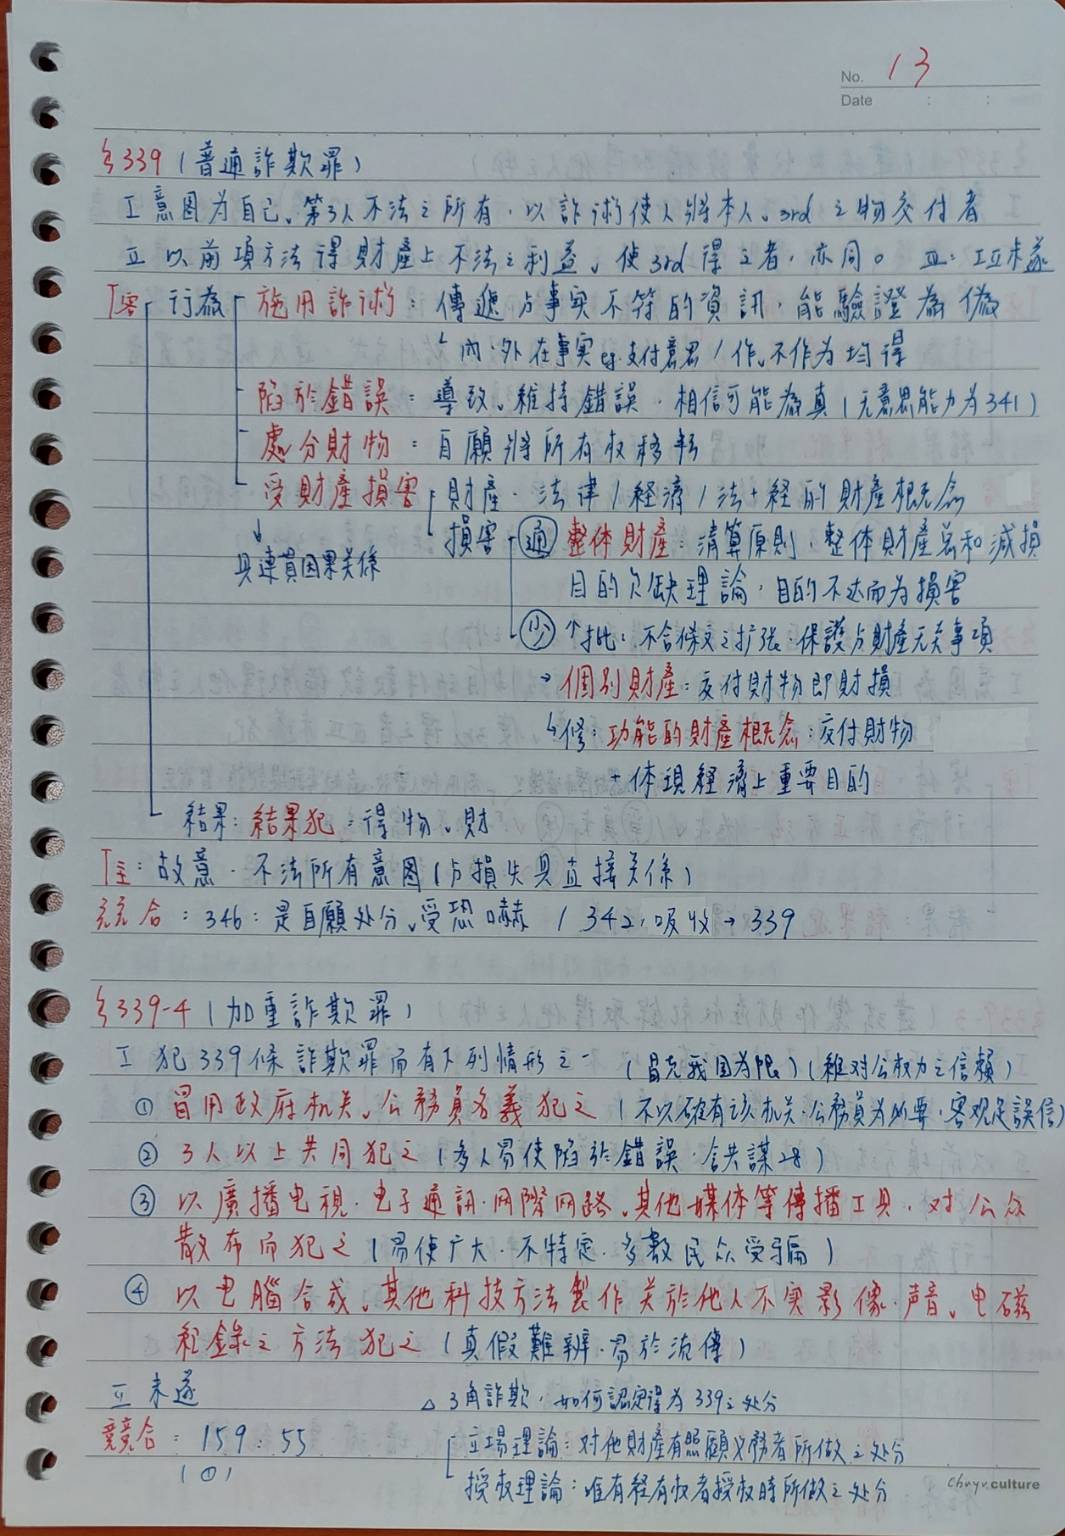 No. 13
Date : :
§339 (普通詐欺罪)
I 意图为自己、第3人不法之所有，以詐術使人將本人、3rd 之物交付者
II 以前項方法得財產上不法之利益、使3rd得之者，亦同。 III: I II 未遂
T客 行為 施用詐術：傳遞与事实不符的資訊，能驗證為偽
內、外在事实 eg. 支付意思 / 作、不作为均得
陷於錯誤：導致、維持錯誤，相信可能為真 (无意思能力为341)
處分財物：自願將所有权移転
受財產損害 財產：法律/経濟/法+経的財產概念
損害 通 整体財產：清算原則，整体財產总和減損
↓ 具連貫因果关係
目的欠缺理論，目的不达而为損害
少 ↑批：不合條文之扩张：保護与財產无关事項
→ 個別財產：交付財物即財損
↳修：功能的財產概念：交付財物
+ 体現経濟上重要目的
結果：結果犯：得物、財
T主：故意、不法所有意图 (与損失具直接关係)
競合：346：是自願处分、受恐嚇 / 342，吸收→339
§339-4 (加重詐欺罪)
I 犯339條詐欺罪而有下列情形之一 (冒充我国为限) (維对公权力之信賴)
① 冒用政府机关、公務員名義犯之 (不以確有該机关、公務員为必要，客观足誤信)
② 3人以上共同犯之 (多人易使陷於錯誤，含共謀28)
③ 以廣播电視、电子通訊、网際网路、其他媒体等傳播工具，对公众
散布而犯之 (易使广大、不特定、多數民众受騙)
④ 以电腦合成、其他科技方法製作关於他人不实影像、声音、电磁
紀錄之方法犯之 (真假難辨，易於流傳)
II 未遂
△ 3角詐欺，如何認定得为339之处分
競合：159：55
(①)
立場理論：对他財產有照顧义務者所做之处分
授权理論：唯有経有权者授权時所做之处分
Chuyu culture